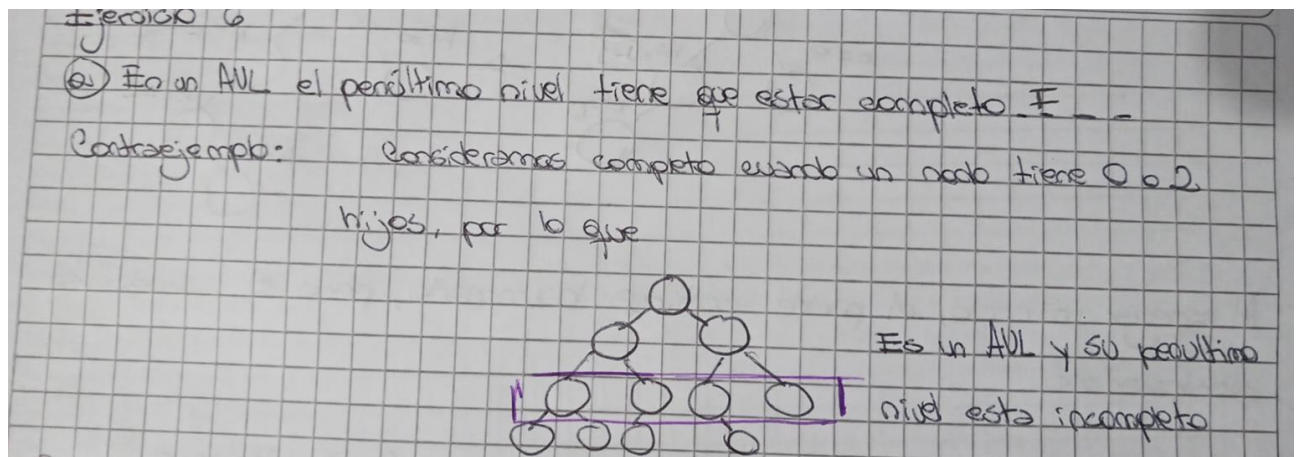 Ejercicio 6
a) En un AVL el penúltimo nivel tiene que estar completo. F
Contraejemplo: Consideramos completo cuando un nodo tiene 0 o 2
hijos, por lo que
Es un AVL y su penultimo
nivel esta incompleto